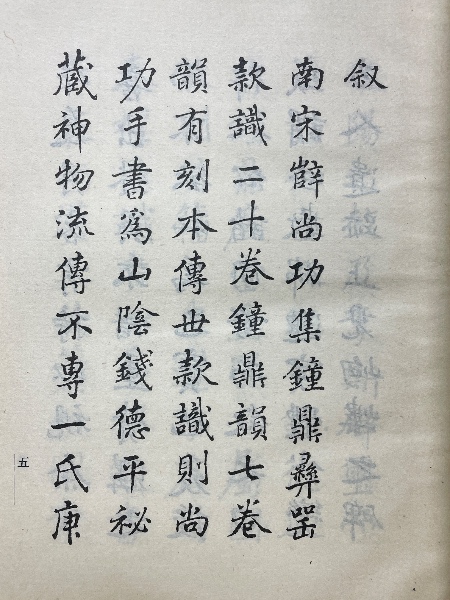 叙
南宋薛尚功集鐘鼎彝器
款識二十卷鐘鼎韻七卷
韻有刻本傳世款識則尚
功手書爲山陰錢德平秘
藏神物流傳不專一氏庚
五